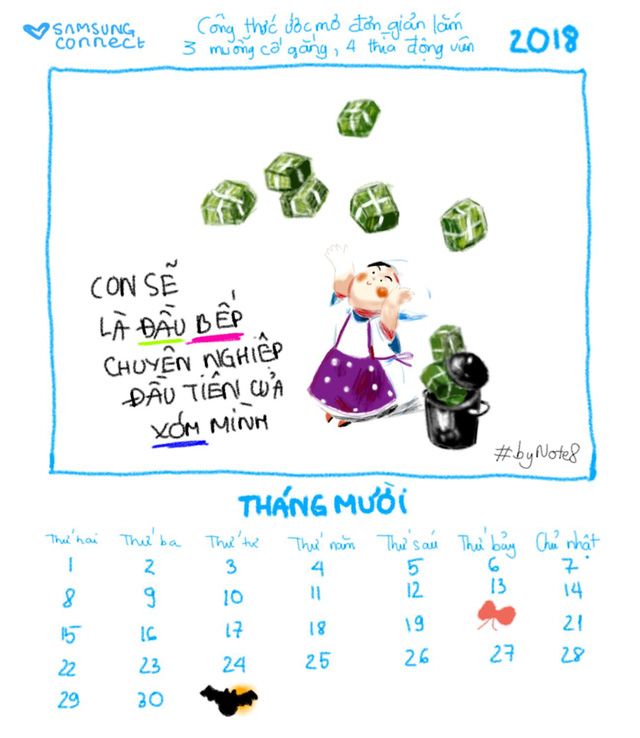 SAMSUNG
connect
Công thức ước mơ đơn giản lắm
3 muỗng cố gắng, 4 thìa động viên
2018
CON SẼ
LÀ ĐẦU BẾP
CHUYÊN NGHIỆP
ĐẦU TIÊN CỦA
XÓM MÌNH
#byNote8
THÁNG MƯỜI
Thứ hai Thứ ba Thứ tư Thứ năm Thứ sáu Thứ bảy Chủ nhật
1 2 3 4 5 6 7
8 9 10 11 12 13 14
15 16 17 18 19 21
22 23 24 25 26 27 28
29 30